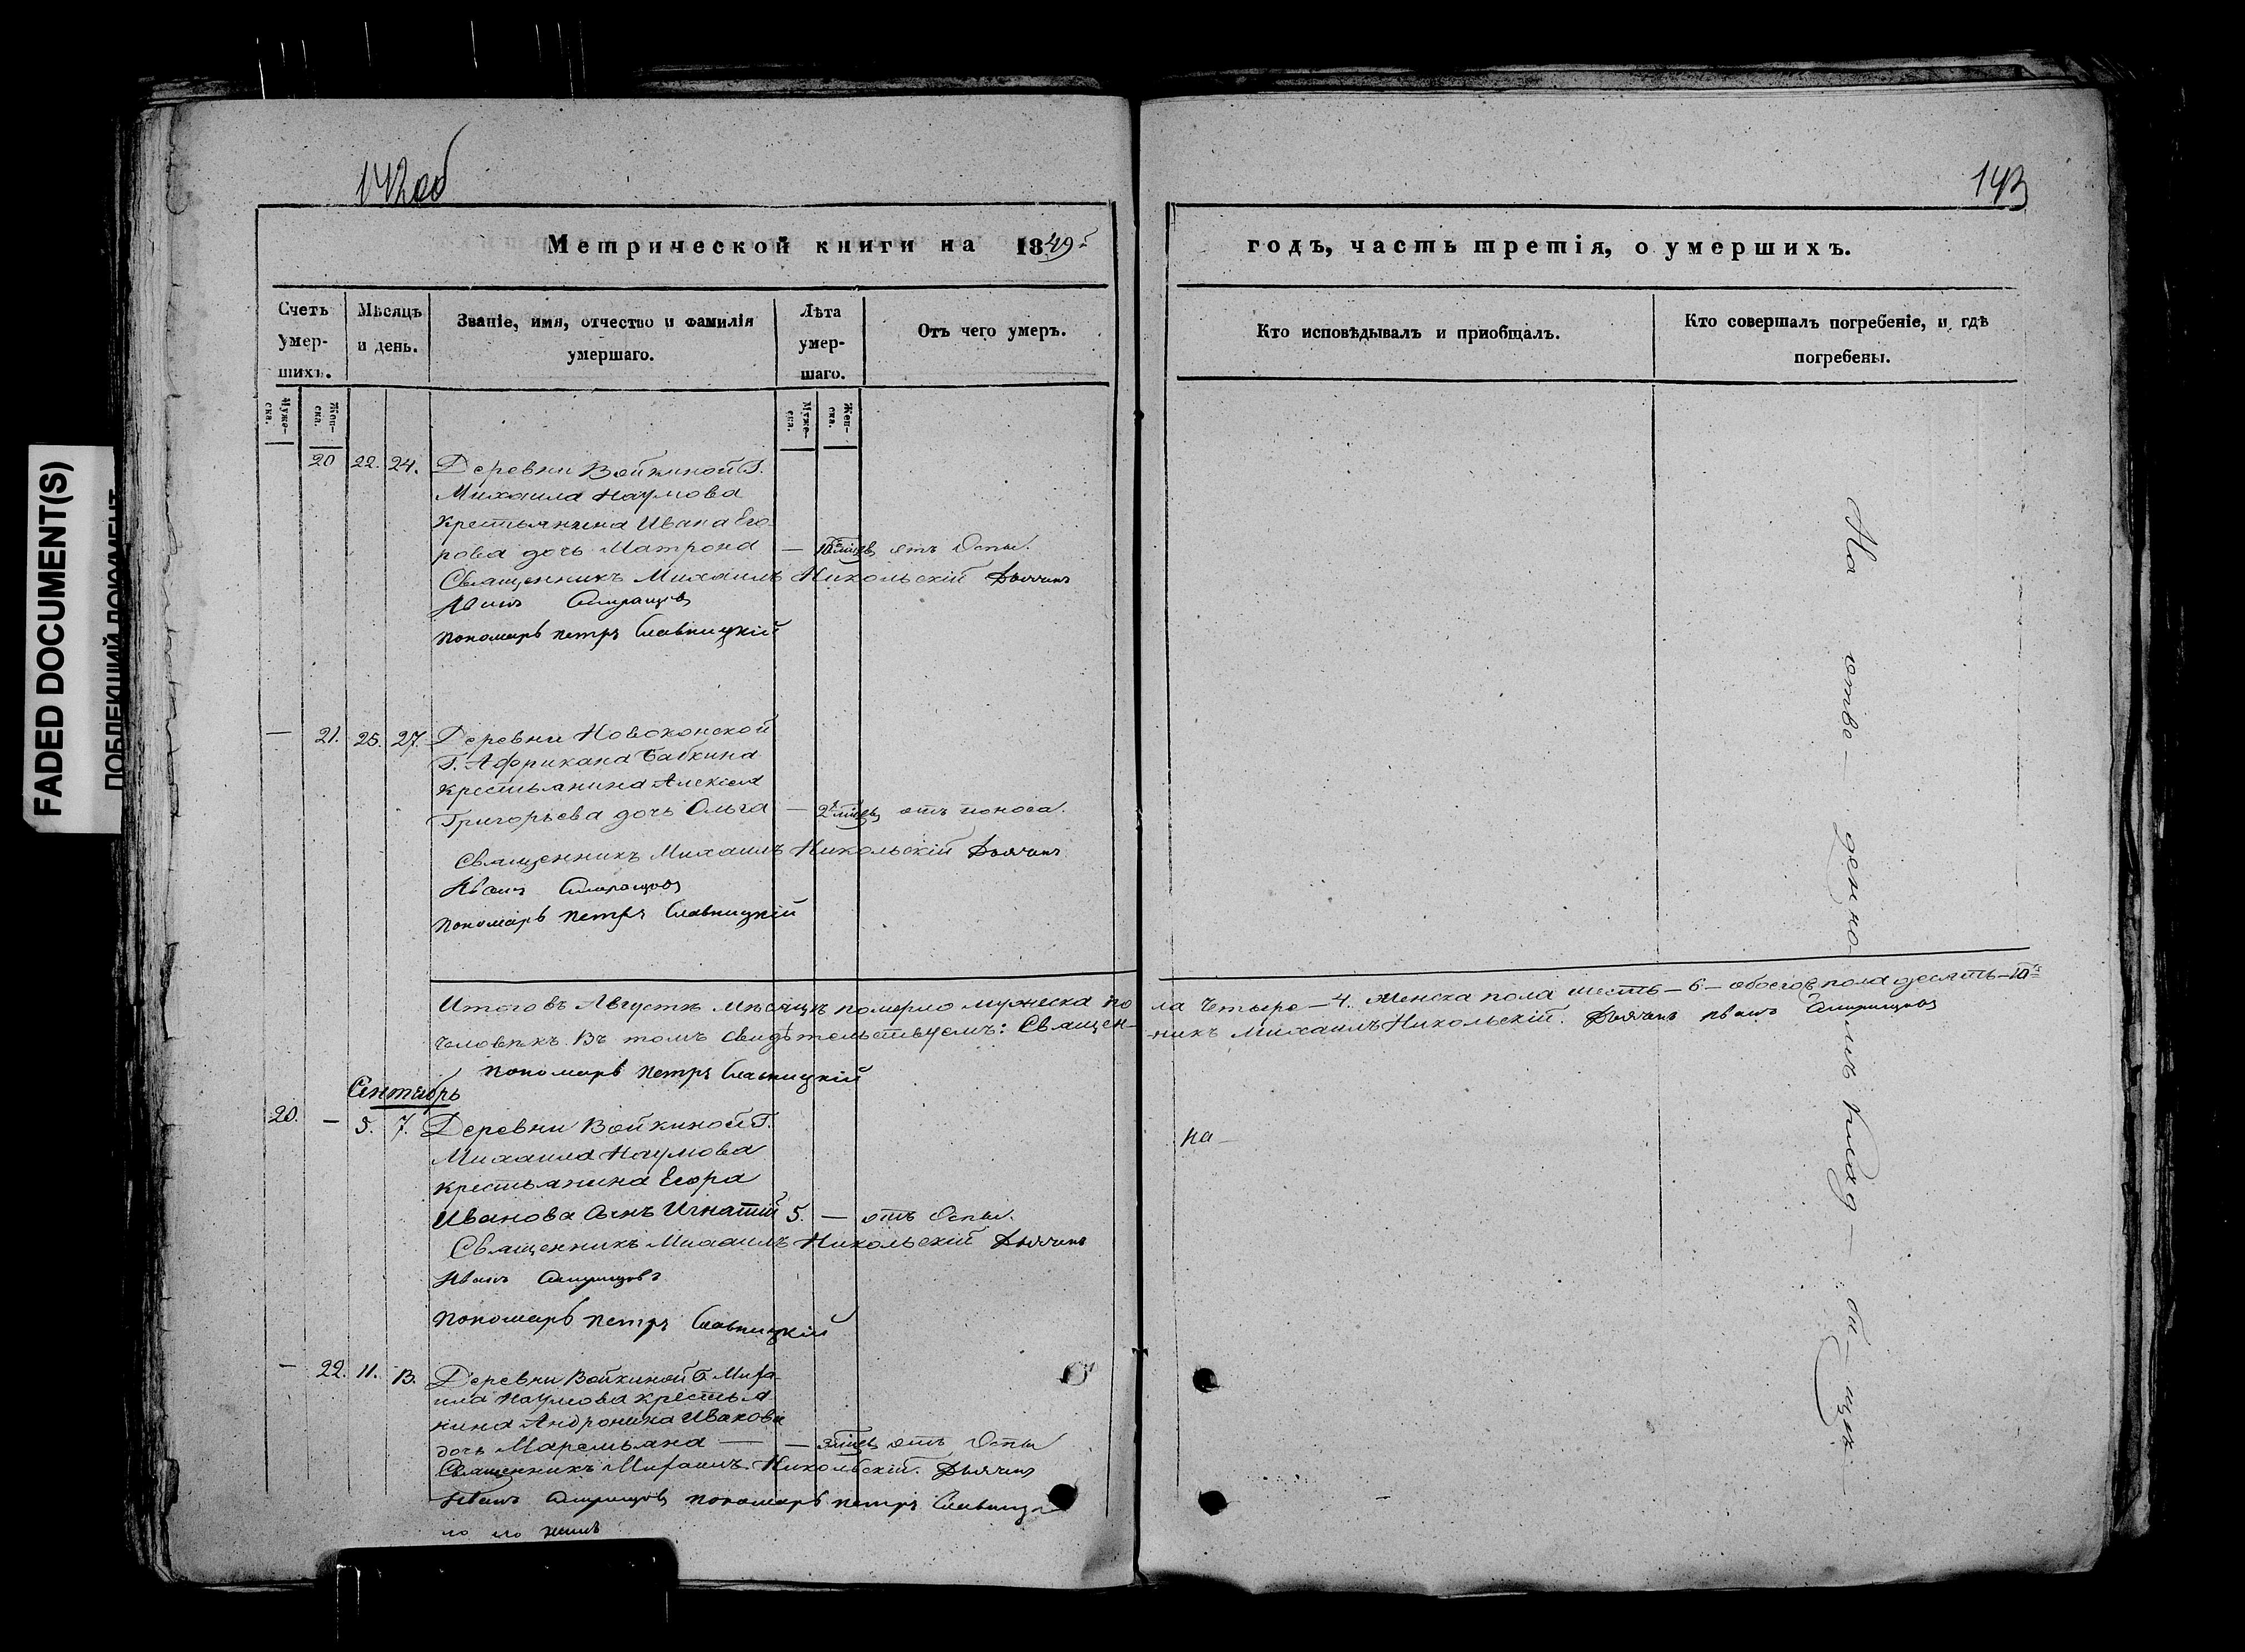 FADED DOCUMENT(S)
ПОБЛЕКШИЙ ДОКУМЕНТ
142об
143
Метрической книги на 1849г
годъ, часть третія, о умершихъ.
Счетъ умер-шихъ.
Мѣсяцъ и день.
Званіе, имя, отчество и фамилія умершаго.
Лѣта умер-шаго.
Отъ чего умеръ.
Кто исповѣдывалъ и приобщалъ.
Кто совершалъ погребеніе, и гдѣ погребены.
Муже-ска.
Жен-ска.
Муже-ска.
Жен-ска.
20 22. 24. Деревни Войкиной Г.
Михаила Наумова
Крестьянина Ивана Его-
рова дочь Матрона — отъ Оспы.
Священникъ Михаилъ Никольскій Дьячекъ
Иванъ
Пономарь Петръ Славницкій
— 21. 25. 27. Деревни Новоконской
Г. Африкана Бабкина
Крестьянина Алексія
Григорьева дочь Ольга — отъ поноса.
Священникъ Михаилъ Никольскій Дьячекъ
Иванъ
Пономарь Петръ Славницкій
Итого въ Августѣ мѣсяцѣ померло мужеска по ла Четыре — 4. Женска пола шесть — 6 — обоего пола десять — 10
человѣкъ. Въ томъ свидѣтельствуемъ: Священ- никъ Михаилъ Никольскій. Дьячекъ Иванъ
Пономарь Петръ Славницкій
Сентябрь
20. — 5. 7. Деревни Войкиной Г.
Михаила Наумова
Крестьянина Егора
Иванова Сынъ Игнатій 5. — отъ Оспы.
Священникъ Михаилъ Никольскій Дьячекъ
Иванъ
Пономарь Петръ Славницкій
— 22. 11. 13. Деревни Войкиной Г. Миха-
ила Наумова Крестья
нина Андроника Ивановa
дочь Маремьяна — — отъ Оспы
Священникъ Михаилъ Никольскій. Дьячекъ
Иванъ Пономарь Петръ
На отве- денно- мъ клад- би- щѣ
на